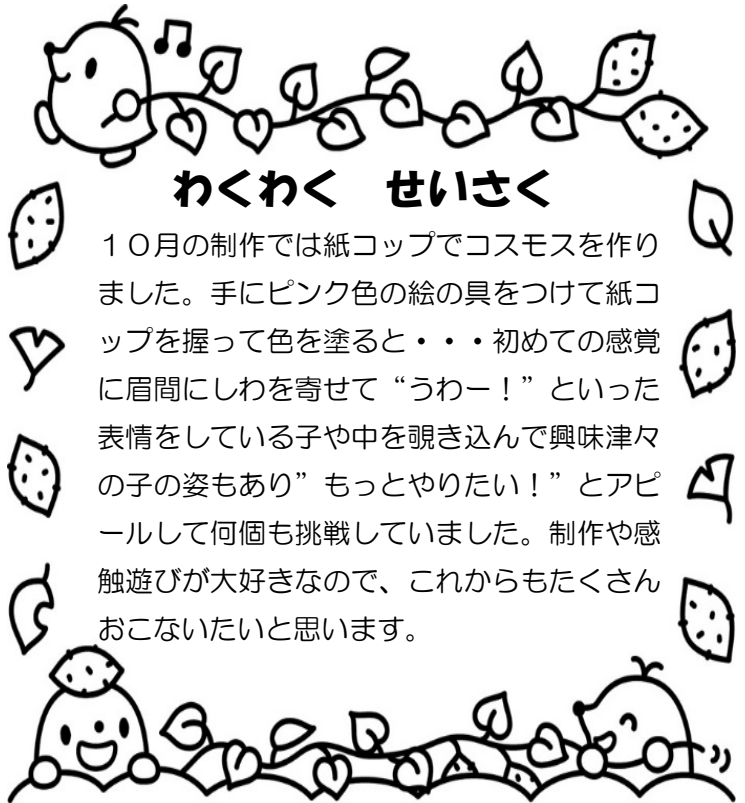 わくわく　せいさく
１０月の制作では紙コップでコスモスを作り
ました。手にピンク色の絵の具をつけて紙コ
ップを握って色を塗ると・・・初めての感覚
に眉間にしわを寄せて“うわー！”といった
表情をしている子や中を覗き込んで興味津々
の子の姿もあり”もっとやりたい！”とアピ
ールして何個も挑戦していました。制作や感
触遊びが大好きなので、これからもたくさん
おこないたいと思います。